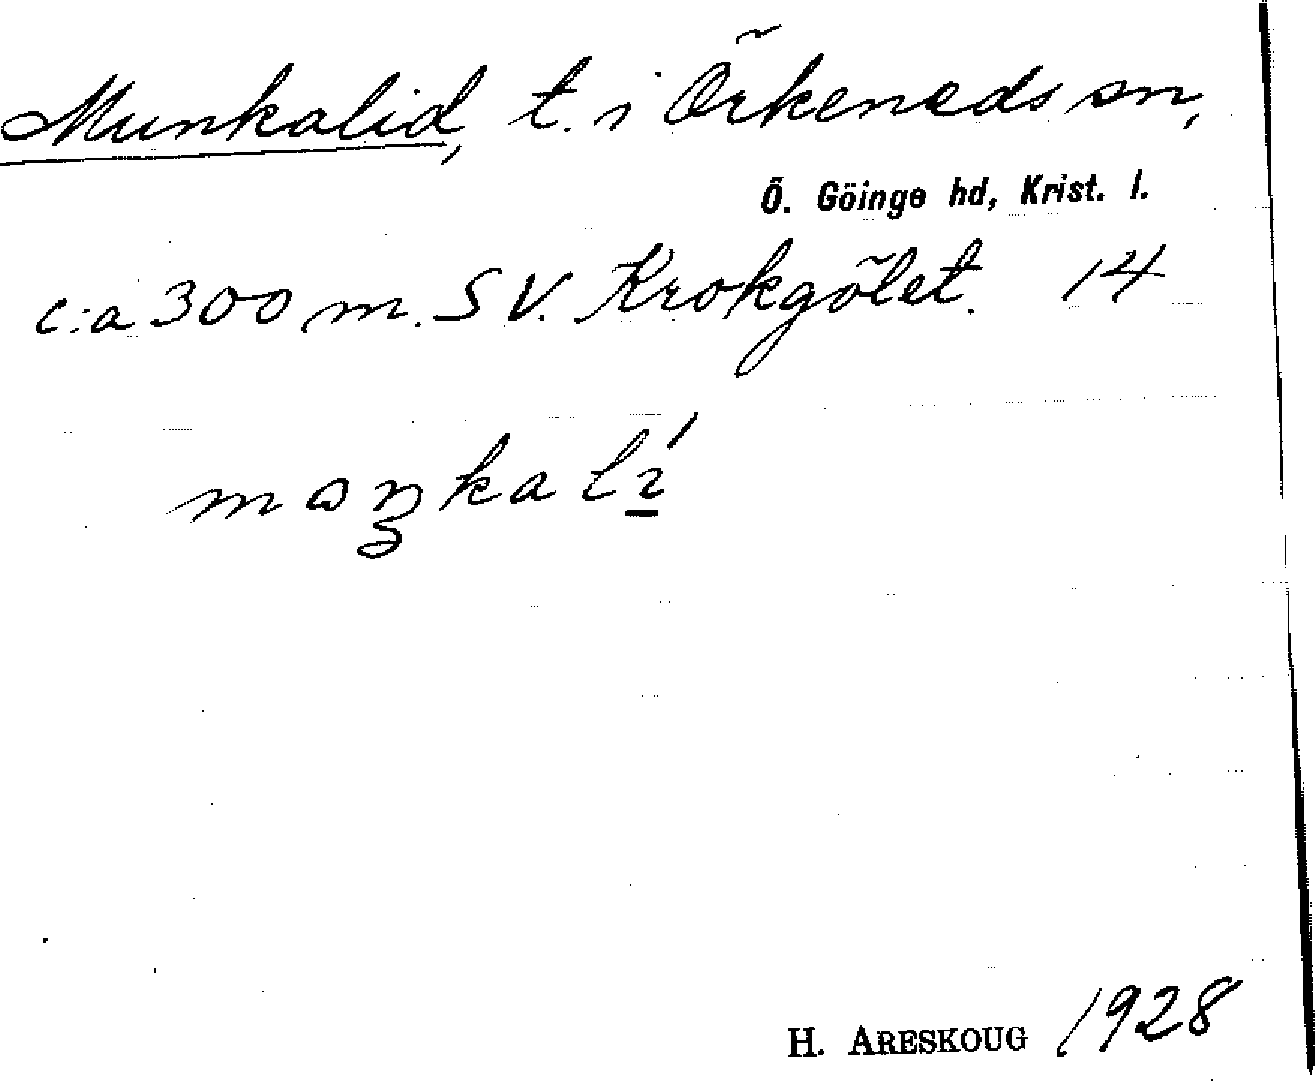 Munkalid, t. i Örkeneds sn,
Ö. Göinge hd, Krist. l.
c:a 300 m. SV. Krokgölet. 14
H. ARESKOUG 1928